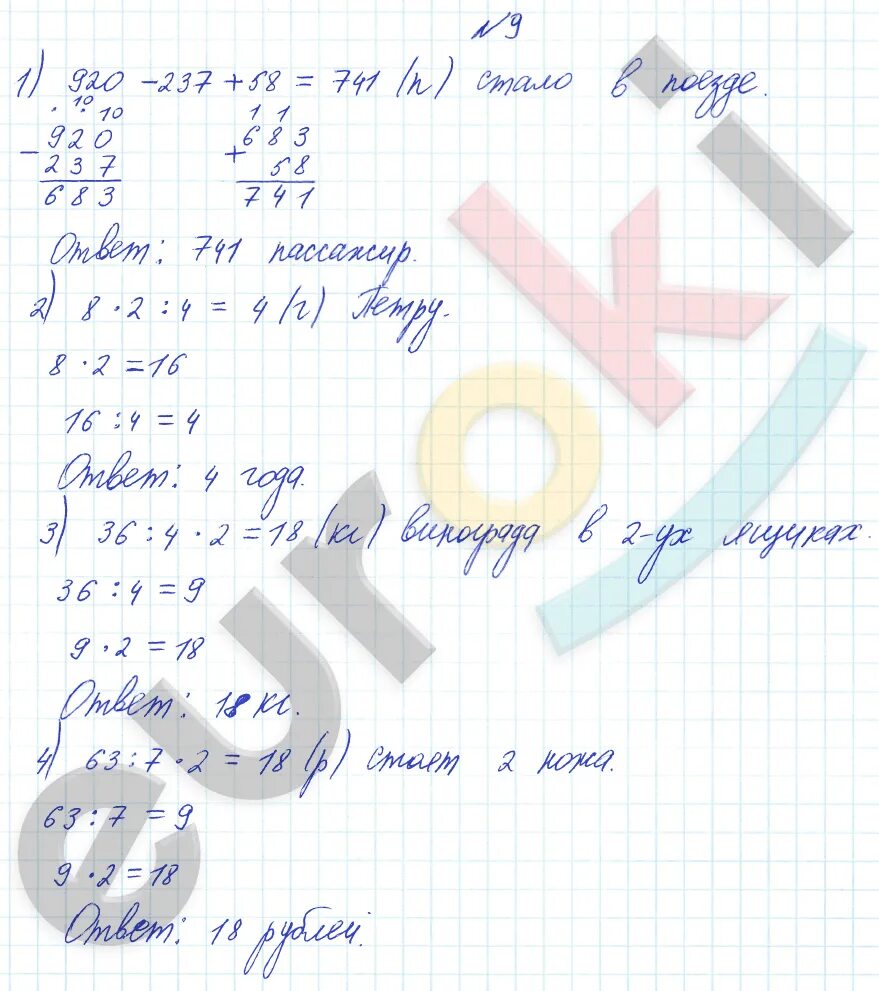 №9
1) 920 - 237 + 58 = 741 (п) стало в поезде.
. 10 . 10     1 1
- 920     + 683
237     58
683     741
Ответ: 741 пассажир.
2) 8 · 2 : 4 = 4 (г) Петру.
8 · 2 = 16
16 : 4 = 4
Ответ: 4 года.
3) 36 : 4 · 2 = 18 (кг) винограда в 2-ух ящиках.
36 : 4 = 9
9 · 2 = 18
Ответ: 18 кг.
4) 63 : 7 · 2 = 18 (р) стоят 2 ножа.
63 : 7 = 9
9 · 2 = 18
Ответ: 18 рублей.
euroki